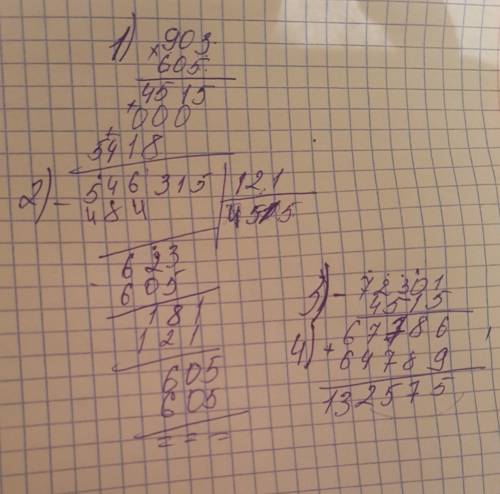 1) × 903
605
4515
+ 000
+ 5418
2) - 546315 | 121
484 | 4515
- 623
605
181
121
605
605
= = =
3) - 72301
4515
67786
4) + 64789
132575